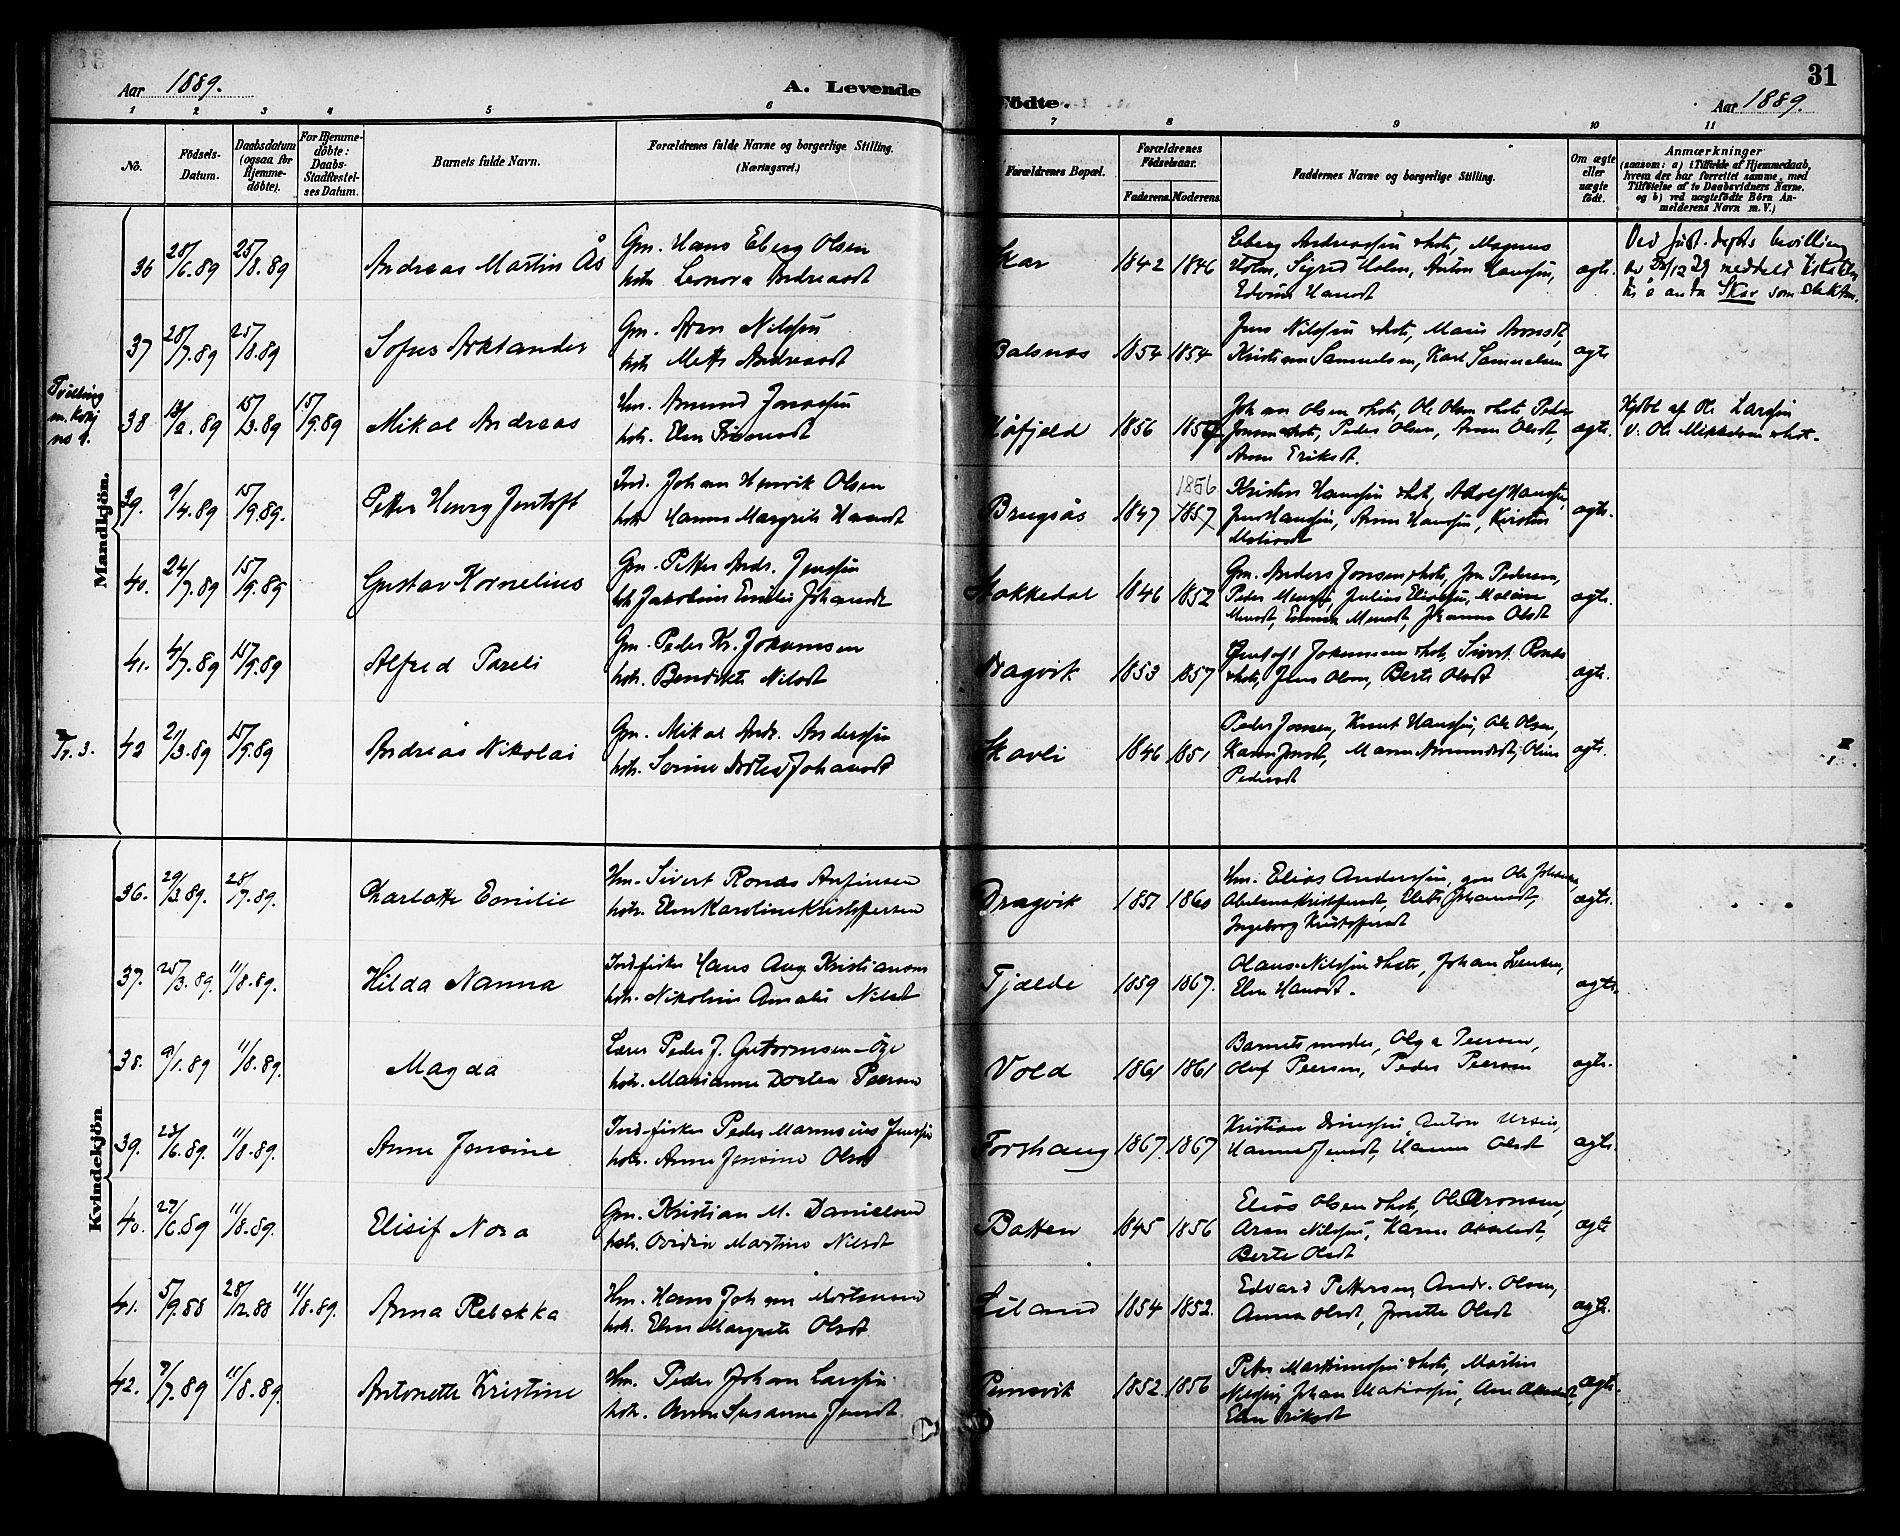 31
Aar 1889.
A. Levende
Födte.
Aar 1889.
1 2 3 4 5 6 7 8 9 10 11
No.
Födsels-
Datum.
Daabsdatum
(ogsaa for
Hjemme-
döbte).
For Hjemme-
döbte:
Daabs-
Stadfæstel-
ses Datum.
Barnets fulde Navn.
Forældrenes fulde Navne og borgerlige Stilling.
(Næringsvei.)
Forældrenes Bopæl.
Forældrenes
Födselsaar.
Faderens. Moderens.
Faddernes Navne og borgerlige Stilling.
Om ægte
eller
uægte
födt.
Anmærkninger
(saasom: a) i Tilfælde af Hjemmedaab,
hvem der har forrettet samme, med
Tilföielse af to Daabsvidners Navne,
og b) ved uægtefödte Börn An-
melderens Navn m. V.)
Mandkjön.
36 28/6.89 25/8.89 Andreas Martin Ås
Gm. Hans Eberg Olsen
hstr. Leonora Andreasdt
Skar 1842 1846
Eberg Andreassen & hstr, Magnus
Holm, Sigrid Holm, Anton Hanssen,
Edvine Hansdt
ægte.
Ved Just. depts bevilling
av 28/12 29 meddeld
til å anta Skar som slektsn.
37 28/7.89 25/8.89 Sofus Arktander
Gm. Aron Nilssen
hstr. Mette Andreasdt
Balsnes 1854 1854
Jens Nilssen & hstr, Maris Aronsdt,
Kristian Samuelsen, Karl Samuelsen
ægte
Tvilling
m.
no 9.
38 13/2.89 15/3.89 15/9.89 Mikal Andreas
Hm. Amund Jonassen
hstr. Elen
Blåfjeld 1856
Johan Olsen & hstr, Ole Olsen & hstr, Peder
Jonsen & hstr, Peder Olsen, Anne Olsdt,
Anne Eriksdt.
ægte.
Hjdbt af Ole Larssen
v. Ole Mikkelsen & hstr.
39. 9/4.89 15/9.89. Petter Henry Jentoft
Ind. Johan Henrik Olsen
hstr Hanna Margrete Hansdt
Brugsås 1847 1856
1857
Kristen Hanssen & hstr, Adolf Hanssen,
Jens Hanssen, Anne Hanssen, Kirstine
Matisdt
ægte.
40. 24/7.89 15/9.89 Gustav Kornelius
Gm. Petter Andr. Jenssen
hstr Jakobine Emilie Johansdt
Stokkedal 1846 1852
Gm. Anders Jonsen & hstr, Jon Pedersen,
Peder Monsen, Julius Eliassen, Malene
Monsdt, Emma Monsdt, Johanna Olsdt
ægte.
41. 4/7.89 15/9.89 Alfred Pareli
Gm. Peder Kr. Johansen
hstr. Bendikte Nilsdt
Dragvik 1853 1857
Jentoft Johansen & hstr, Sivert Ronds
& hstr, Jens Olsen, Berte Olsdt
ægte.
Tv. 3.
42 21/3.89 15/9.89 Andreas Nikolai
Gm. Mikal Andr. Anderssen
hstr. Serine Dortea Johansdt
Skavli 1846 1851
Peder Jonsen, Knut Hanssen, Ole Olsen,
Karen Jonsdt, Maren Amundsdt, Oline
Pedersdt
ægte.
Kvindekjön.
36. 29/3.89. 28/7.89. Charlotte Emilie
Hm. Sivert Ronds Anfinsen
hstr. Elen Karoline Kristoffersen
Dragvik 1857 1860
Hm. Elias Anderssen, gm Ole Johansen,
Abelone Kristoffersdt, Elert Johansdt,
Ingeborg Kristoffersdt
ægte.
37. 25/3.89. 11/8.89. Hilda Nanna
Ind. fisker Hans Aug. Kristiansen
hstr. Nikoline Amalie Nilsdt
Fjelde 1859 1867.
Olaus Nilssen & hstr, Johan Lorentsen,
Elen Hansdt.
ægte.
38. 9/1.89 11/8.89. Magda
Lærer Peder J. Guttormsen-Öye
hstr. Marianne Dortea Peersen
Vold 1861 1861
Barnets moder, Olga Peersen,
Oluf Peersen, Peder Peersen
ægte.
39. 23/6.89. 11/8.89. Anne Jensine
Ind-fisker Peder Marensius Jenssen
hstr. Anne Jensine Olsdt
Forshaug 1867. 1867
Kristian, Anton Ursin,
Hanne Jensdt, Hanna Olsdt
ægte.
40. 27/6.89 11/8.89. Elisif Nora
Gm. Kristian M. Danielsen
hstr. Ovidia Martine Nilsdt
Botten 1845 1856
Elias Olsen & hstr, Ole Aronsen,
Aron Nilssen, Karen Akseldt,
Berte Olsdt
ægte
41. 5/9.88 28/12.88 11/8.89. Anna Rebekka
Hm. Hans Johan Mortensen
hstr. Elen Margrete Olsdt.
Liland 1854 1852.
Edvard Pettersen, Andr. Olsen,
Anna Olsdt, Jonette Olsdt
ægte.
42. 7/7.89 11/8.89. Antonette Kristine
Hm. Peder Johan Larssen
hstr. Anne Susanne Jonsdt.
Pumsvik 1852. 1856
Peter Martinussen & hstr, Martin
Nilssen, Johan Matiassen, Ane,
Elen Eriksdt
ægte.